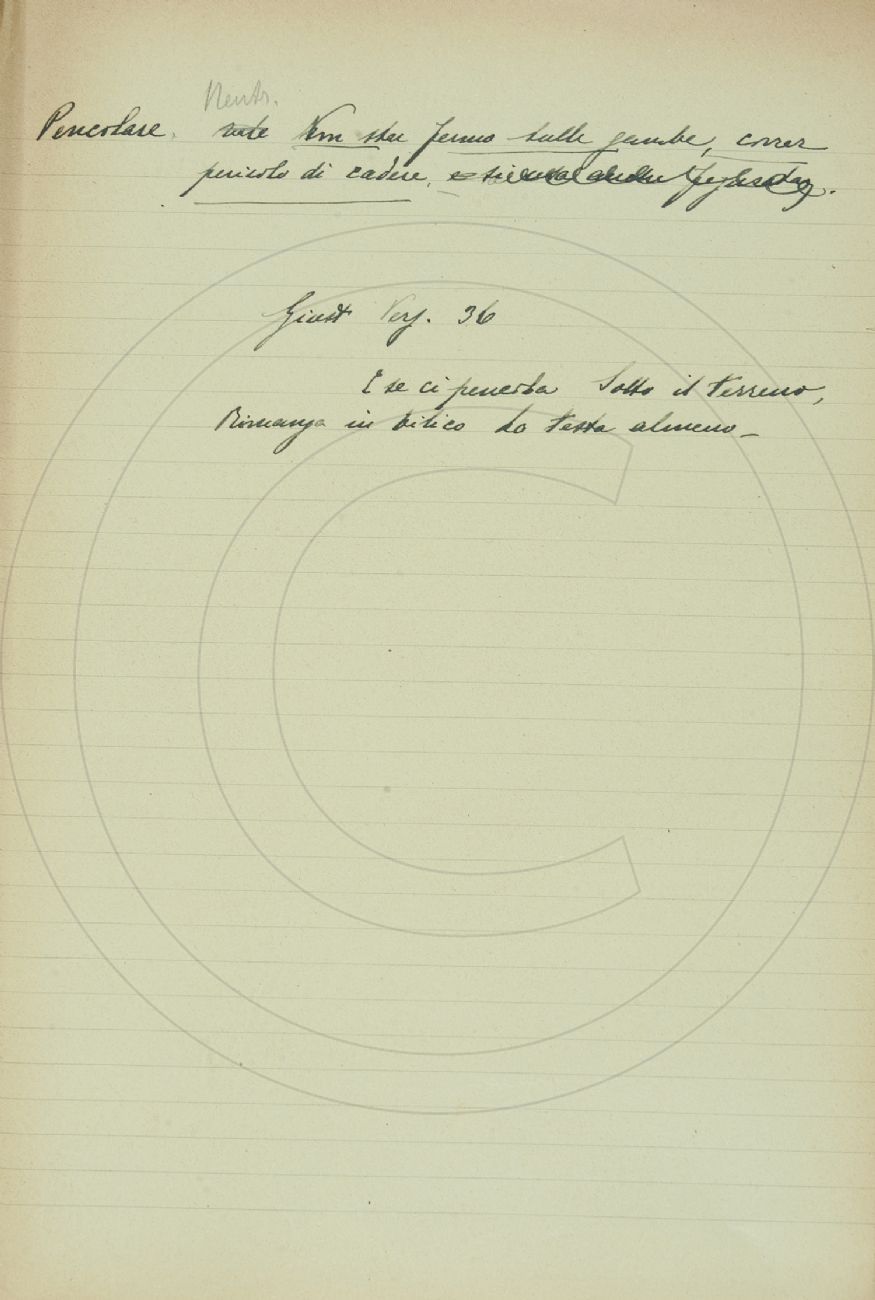 Neutr.
Pencolare. Non star fermo sulle gambe, correr
pericolo di cadere.
Giust Vers. 36
E se ci pencola Sotto il terreno,
Rimanga in bilico La testa almeno_